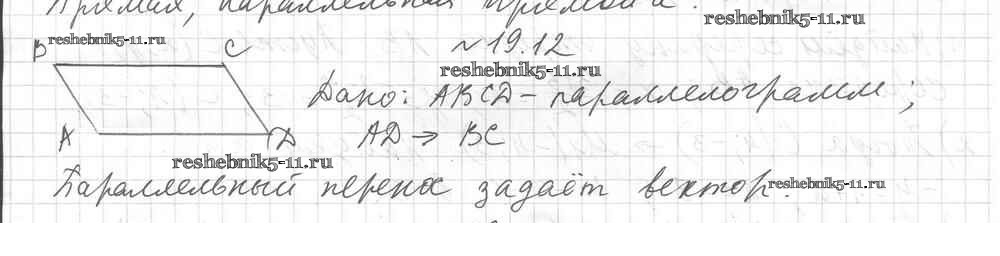 Прямая, параллельная прямой a.
reshebnik5-11.ru
reshebnik5-11.ru
B C
№19.12
reshebnik5-11.ru
Дано: ABCD - параллелограмм;
A D AD → BC
reshebnik5-11.ru
Параллельный перенос задаёт вектор.
reshebnik5-11.ru